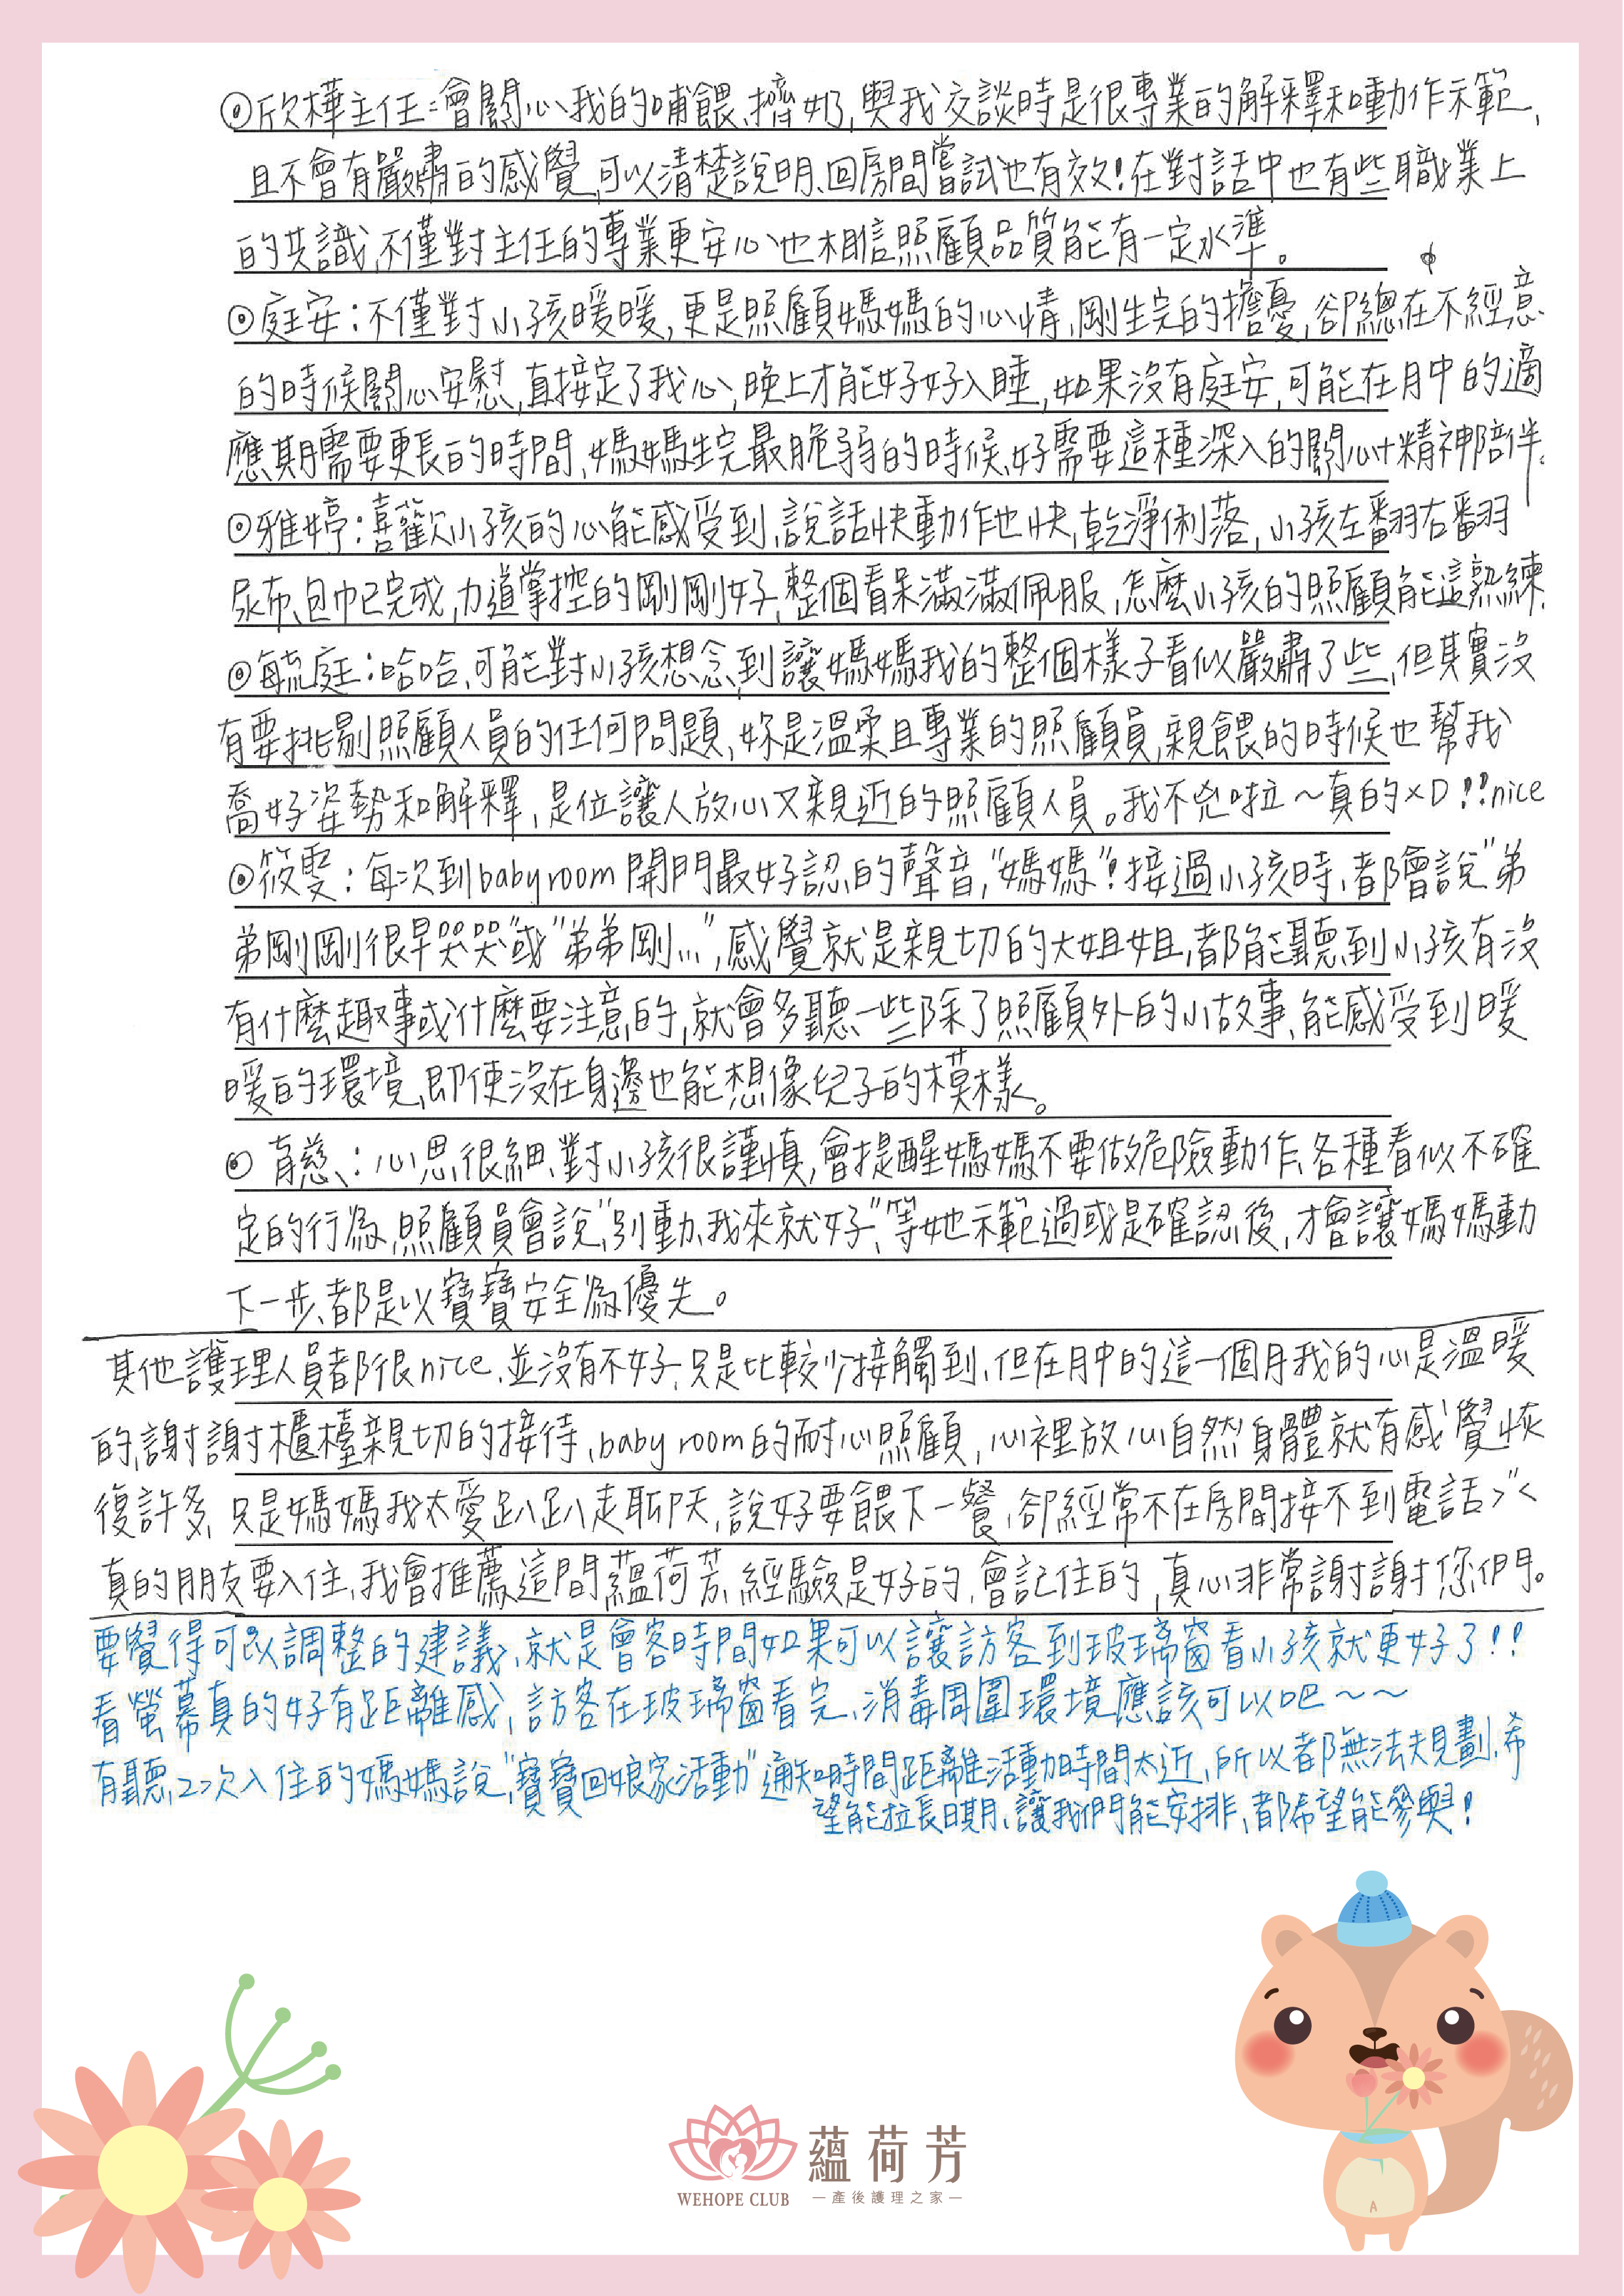 ⊙欣樺主任:會關心我的哺餵、擠奶,與我交談時是很專業的解釋和動作示範、
且不會有嚴肅的感覺,可以清楚說明、回房間嘗試也有效!在對話中也有些職業上
的共識、不僅對主任的專業更安心也相信照顧品質能有一定水準。
⊙庭安:不僅對小孩暖暖,更是照顧媽媽的心情、剛生完的擔憂,卻總在不經意
的時候關心安慰,直接定了我心,晚上才能好好入睡,如果沒有庭安,可能在月中的適
應期需要更長的時間、媽媽生完最脆弱的時候、好需要這種深入的關心+精神陪伴。
⊙雅婷:喜歡小孩的心能感受到、說話快動作也快,乾淨俐落,小孩左翻右翻
尿布、包巾已完成,力道掌控的剛剛好、整個看呆滿滿佩服、怎麼小孩的照顧能這熟練、
⊙毓庭:哈哈、可能對小孩想念、到讓媽媽我的整個樣子看似嚴肅了些、但其實沒
有要挑剔照顧人員的任何問題,妳是溫柔且專業的照顧員,親餵的時候也幫我
喬好姿勢和解釋,是位讓人放心又親近的照顧人員。我不兇啦~真的xD!!nice
⊙筱雯:每次到babyroom開門最好認的聲音,"媽媽"!接過小孩時、都會說"弟
弟剛剛很早哭哭"或"弟弟剛...",感覺就是親切的大姐姐,都能聽到小孩有沒
有什麼趣事或什麼要注意的,就會多聽一些除了照顧外的小故事、能感受到暖
暖的環境、即使沒在身邊也能想像兒子的模樣。
⊙育慈:心思很細、對小孩很謹慎,會提醒媽媽不要做危險動作、各種看似不確
定的行為、照顧員會說"別動、我來就好"、等她示範過或是確認後,才會讓媽媽動
下一步、都是以寶寶安全為優先。
其他護理人員都很nice、並沒有不好、只是比較少接觸到、但在月中的這一個月我的心是溫暖
的、謝謝櫃檯親切的接待、baby room的耐心照顧,心裡放心自然身體就有感覺恢
復許多、只是媽媽我太愛趴趴走聊天,說好要餵下一餐、卻經常不在房間接不到電話>"<
真的朋友要入住、我會推薦這間蘊荷芳、經驗是好的、會記住的,真心非常謝謝您們。
要覺得可以調整的建議、就是會客時間如果可以讓訪客到玻璃窗看小孩就更好了!!
看螢幕真的好有距離感、訪客在玻璃窗看完、消毒周圍環境應該可以吧~~
有聽、2次入住的媽媽說、"寶寶回娘家活動"通知時間距離活動時間太近、所以都無法規劃、希
望能拉長日期、讓我們能安排、都希望能參與!
蘊荷芳
WEHOPE CLUB
—產後護理之家—